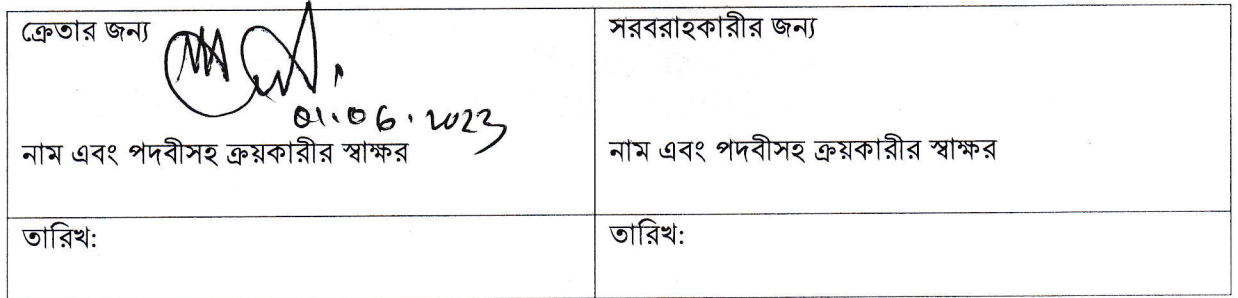 ক্রেতার জন্য
01.06.2023
নাম এবং পদবীসহ ক্রয়কারীর স্বাক্ষর
সরবরাহকারীর জন্য
নাম এবং পদবীসহ ক্রয়কারীর স্বাক্ষর
তারিখ:
তারিখ: